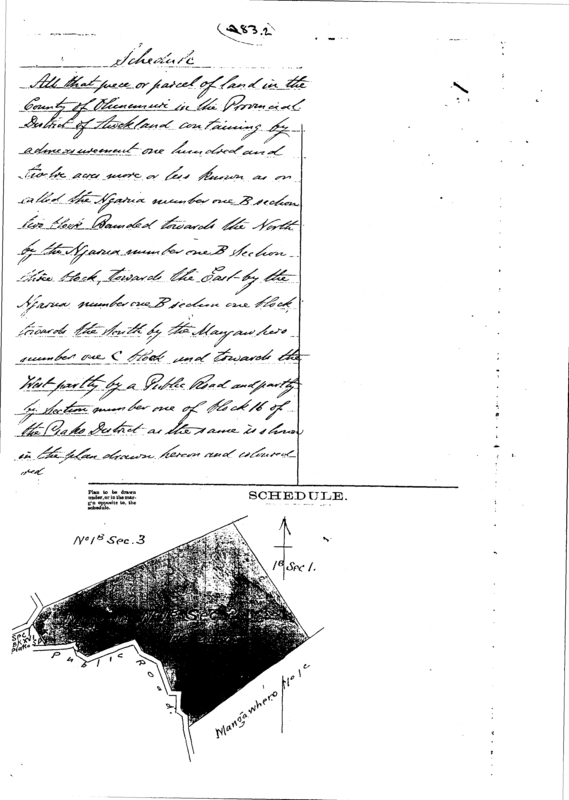 A83.2
Schedule
All that piece or parcel of land in the
County of Ohinemuri in the Provincial
District of Auckland containing by
admeasurement one hundred and
twelve acres more or less known as or
called the Ngarua number one B section
two block Bounded towards the North
by the Ngarua number one B Section
three block, towards the East by the
Ngarua number one B section one block
towards the South by the Mangawhero
number one C block and towards the
West partly by a Public Road and partly
by Section number one of block 16 of
the Piako District as the same is shown
in the plan drawn hereon and coloured
red
Plan to be drawn
under, or in the mar-
g'n opposite to, the
schedule.
SCHEDULE.
No 1B Sec. 3
1B Sec 1.
Sec
Bk XVI
Piako S.D.
Public Road.
Mangawhero No 1C